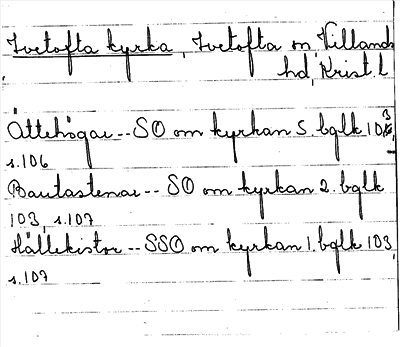 Ivetofta kyrka, Ivetofta sn, Villands
hd, Krist. l
Ättehögar -- SO om kyrkan 5. bglk 103,
s.106
Bautastenar -- SO om kyrkan 2. bglk
103, s.107
Hällekistor -- SSO om kyrkan 1. bglk 103,
s.107